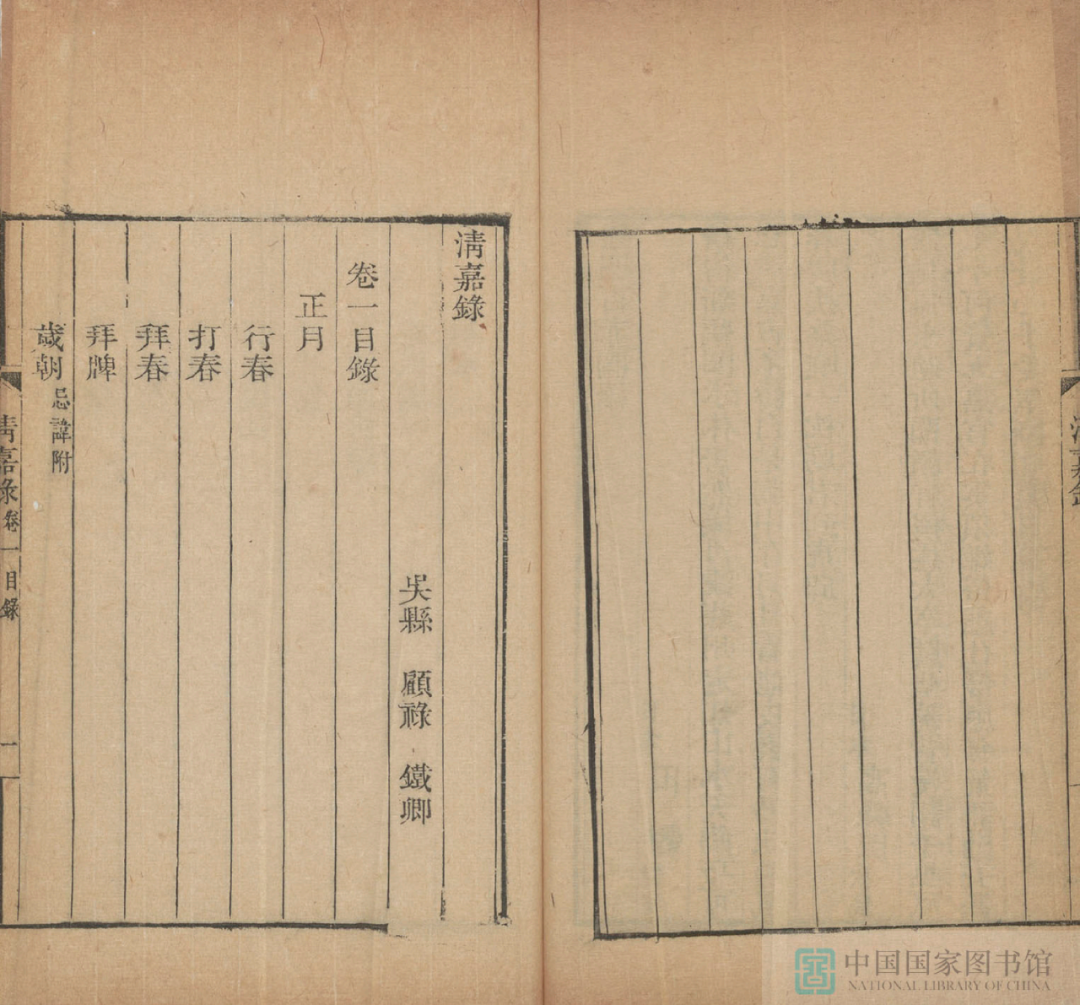 清嘉錄
吳� 顧祿 鐵卿
卷一目錄
正月
行春
打春
拜春
拜牌
歲朝 忌諱附
清嘉錄 卷一目錄 一
清嘉錄
中国国家图书馆
NATIONAL LIBRARY OF CHINA